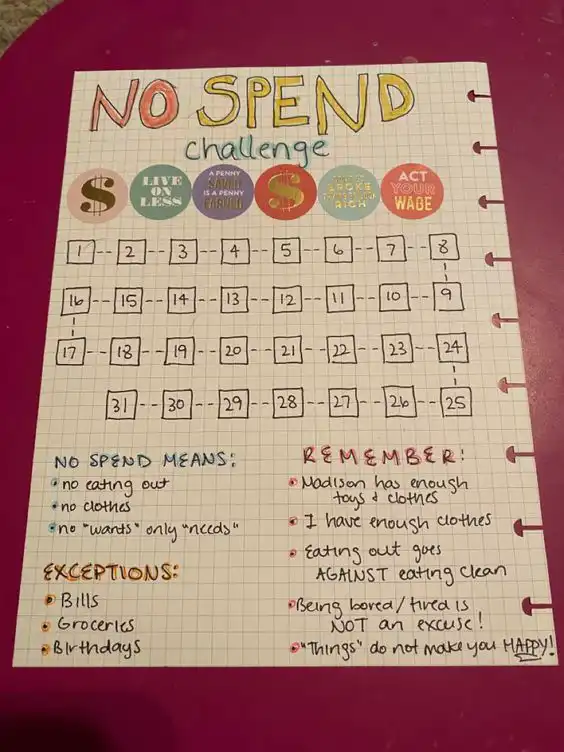 NO SPEND
challenge
$
LIVE
ON
LESS
A PENNY
SAVED
IS A PENNY
EARNED
$
BROKE
RICH
ACT
YOUR
WAGE
1 2 3 4 5 6 7 8
16 15 14 13 12 11 10 9
17 18 19 20 21 22 23 24
31 30 29 28 27 26 25
NO SPEND MEANS:
• no eating out
• no clothes
• no "wants" only "needs"
EXCEPTIONS:
• Bills
• Groceries
• Birthdays
REMEMBER:
• Madison has enough
toys & clothes
• I have enough clothes
• Eating out goes
AGAINST eating clean
• Being bored/tired is
NOT an excuse!
• "Things" do not make you HAPPY!